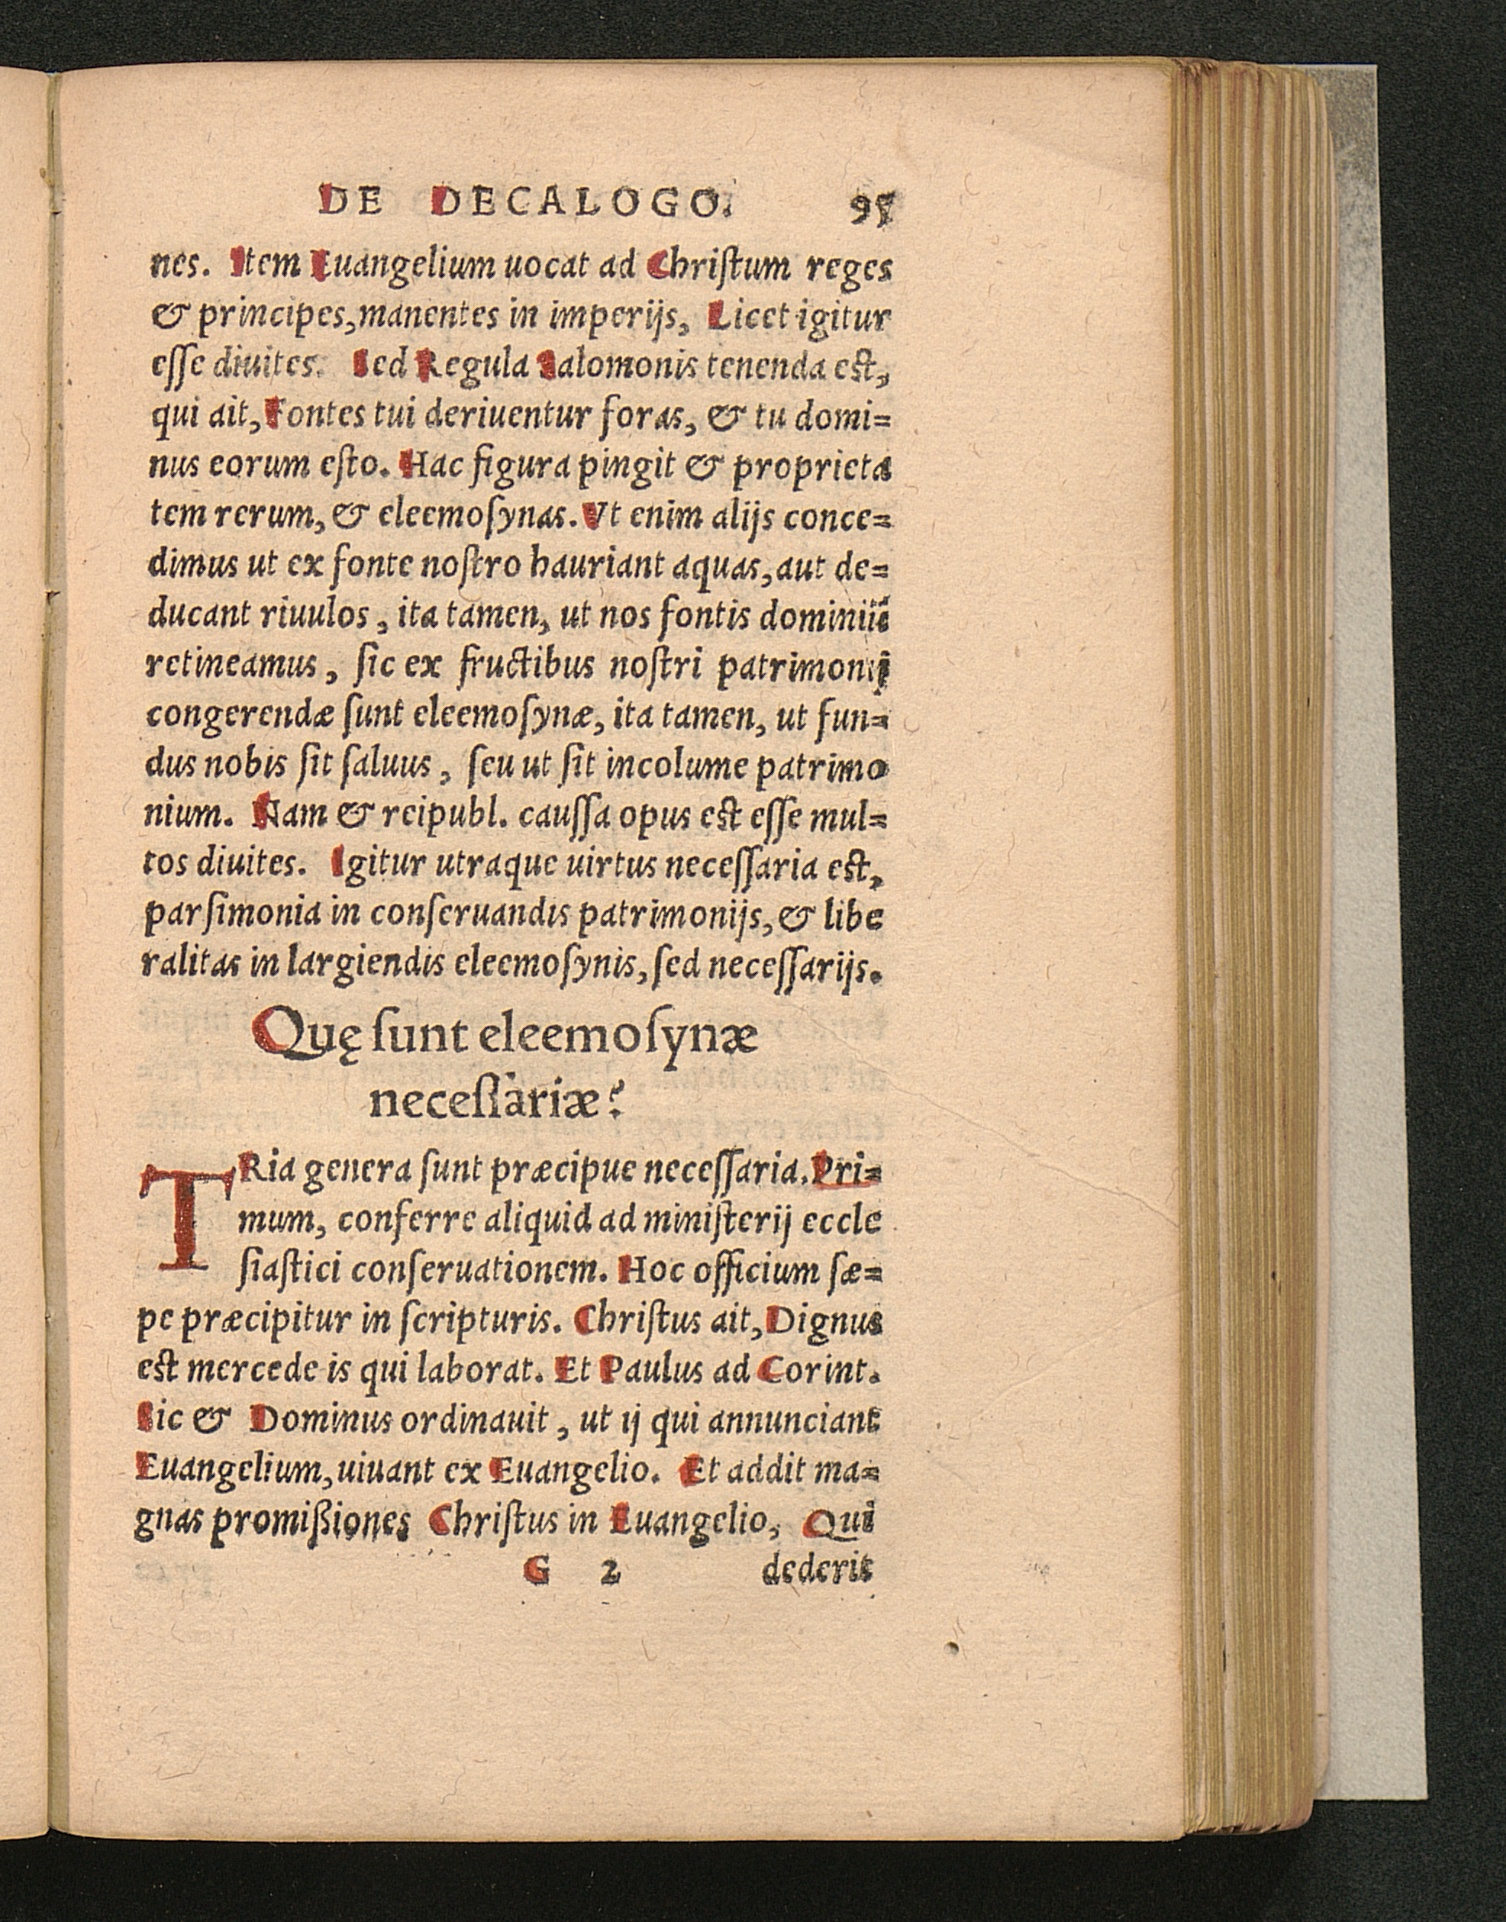 DE DECALOGO. 95
nes. Item Euangelium uocat ad Chriſtum reges
& principes, manentes in imperijs, Licet igitur
eſſe diuites. Sed Regula Salomonis tenenda eſt,
qui ait, Fontes tui deriuentur foras, & tu domi=
nus eorum eſto. Hac figura pingit & proprieta
tem rerum, & eleemoſynas. Vt enim alijs conce=
dimus ut ex fonte noſtro hauriant aquas, aut de=
ducant riuulos, ita tamen, ut nos fontis dominiũ
retineamus, ſic ex fructibus noſtri patrimonij
congerendæ ſunt eleemoſynæ, ita tamen, ut fun=
dus nobis ſit ſaluus, ſeu ut ſit incolume patrimo
nium. Nam & reipubl. cauſſa opus eſt eſſe mul=
tos diuites. Igitur utraque uirtus neceſſaria eſt,
parſimonia in conſeruandis patrimonijs, & libe
ralitas in largiendis eleemoſynis, ſed neceſſarijs.
Quę ſunt eleemoſynæ
neceſſariæ?
TRia genera ſunt præcipue neceſſaria. Pri=
mum, conferre aliquid ad miniſterij eccle
ſiaſtici conſeruationem. Hoc officium ſæ=
pe præcipitur in ſcripturis. Chriſtus ait, Dignus
eſt mercede is qui laborat. Et Paulus ad Corint.
Sic & Dominus ordinauit, ut ij qui annunciant
Euangelium, uiuant ex Euangelio. Et addit ma=
gnas promißiones Chriſtus in Euangelio, Qui
G 2 dederit